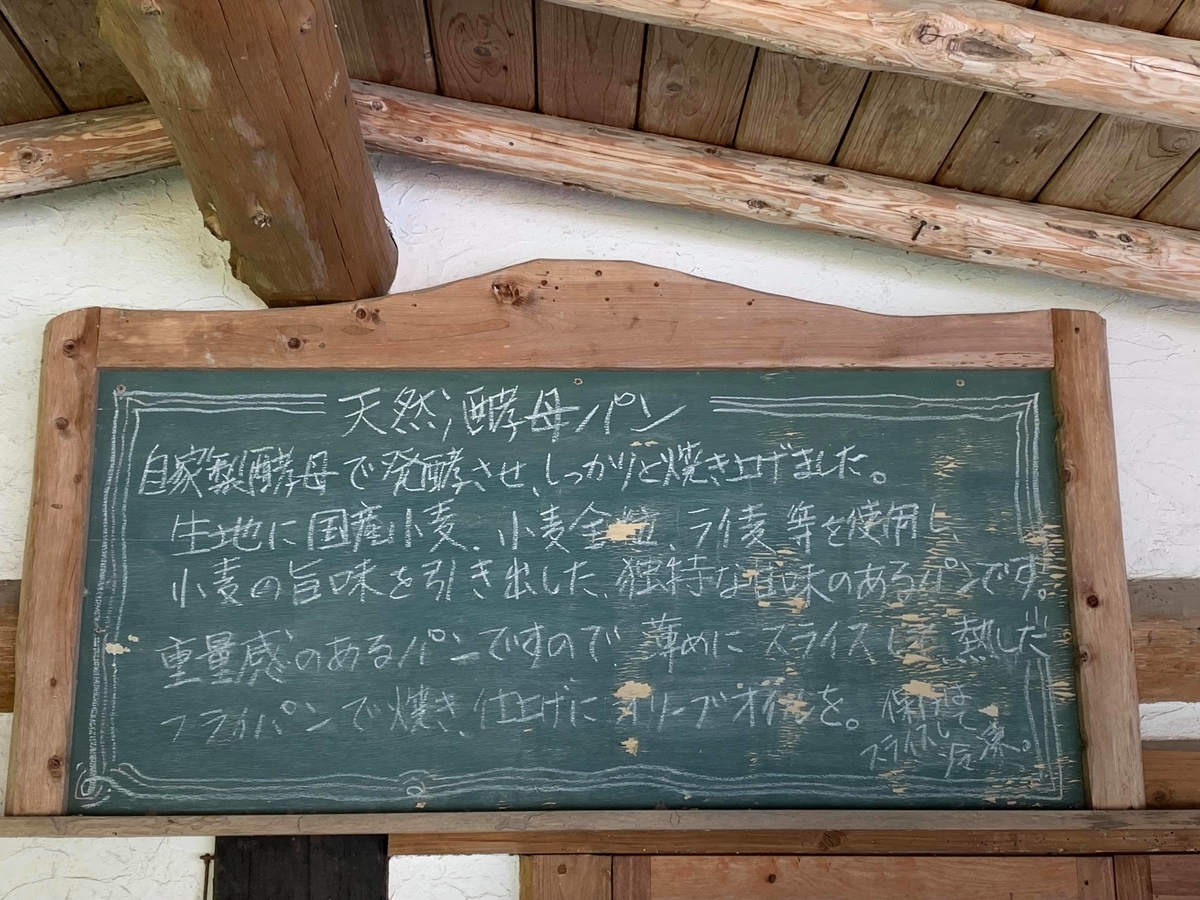 天然酵母パン
自家製酵母で発酵させ、しっかりと焼き上げました。
生地に国産小麦、小麦全粒、ライ麦等を使用し、
小麦の旨味を引き出した、独特な旨味のあるパンです。
重量感のあるパンですので、薄めにスライスして、熱した
フライパンで焼き、仕上げにオリーブオイルを。
保存は
スライスして冷凍。